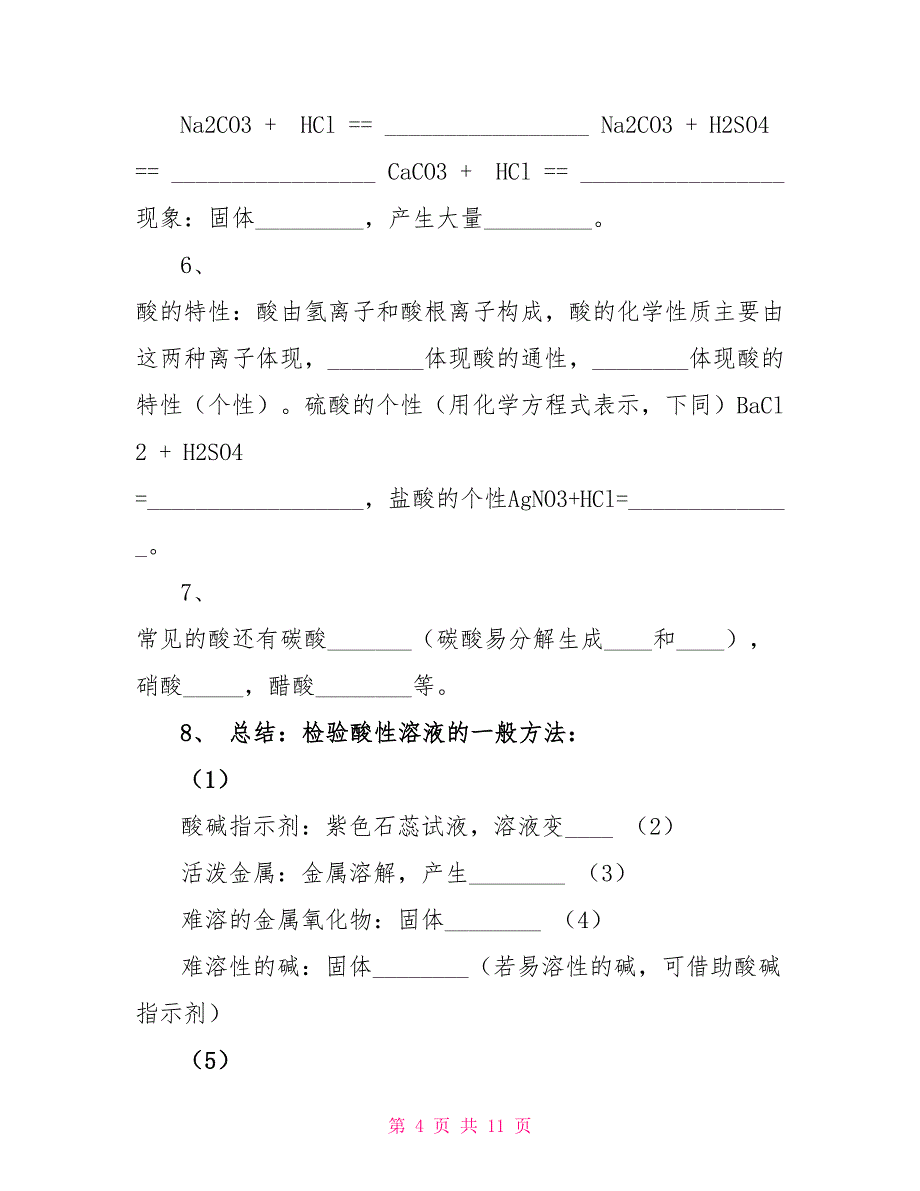 Na2CO3 +  HCl == _________________ Na2CO3 + H2SO4
== _________________ CaCO3 +  HCl == _________________
现象：固体_________，产生大量_________。
6、
酸的特性：酸由氢离子和酸根离子构成，酸的化学性质主要由
这两种离子体现，________体现酸的通性，________体现酸的
特性（个性）。硫酸的个性（用化学方程式表示，下同）BaCl
2 + H2SO4
=__________________，盐酸的个性AgNO3+HCl=_____________
_。
7、
常见的酸还有碳酸_______（碳酸易分解生成____和____），
硝酸_____，醋酸________等。
8、 总结：检验酸性溶液的一般方法：
（1）
酸碱指示剂：紫色石蕊试液，溶液变____ （2）
活泼金属：金属溶解，产生________ （3）
难溶的金属氧化物：固体________ （4）
难溶性的碱：固体________（若易溶性的碱，可借助酸碱
指示剂）
（5）
第 4 页 共 11 页